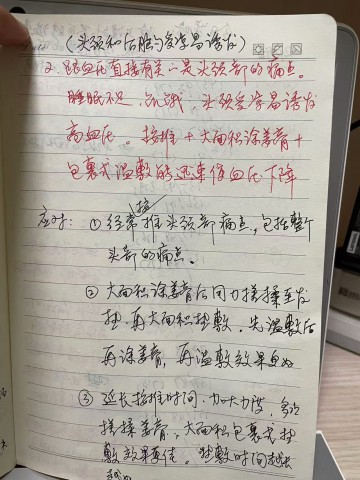 (头颈和后脑勺受寒易诱发)
2. 跟血压直接有关一是头颈部的痛点。
睡眠不足、饥饿、头颈受寒易诱发
高血压。按推+大面积涂姜膏+
包裹式温敷能迅速使血压下降
应对: ①经常按推头颈部痛点,包括整个
头部的痛点。
②大面积涂姜膏后用力搓揉至发
热,再大面积热敷。先温敷后
再涂姜膏,再温敷效果更好
③延长按推时间,加大力度,多次
搓揉姜膏,大面积包裹式热
敷效果更佳。热敷时间越长
越好